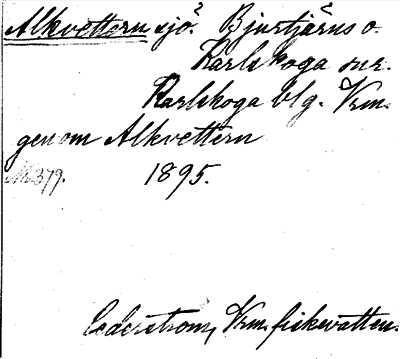 Alkvettern sjö? Bjurtjärns o.
Karlskoga snr.
Karlskoga blg. Vrm.
genom Alkvettern
N:379. 1895.
Cederström, Vrm. fiskevatten.